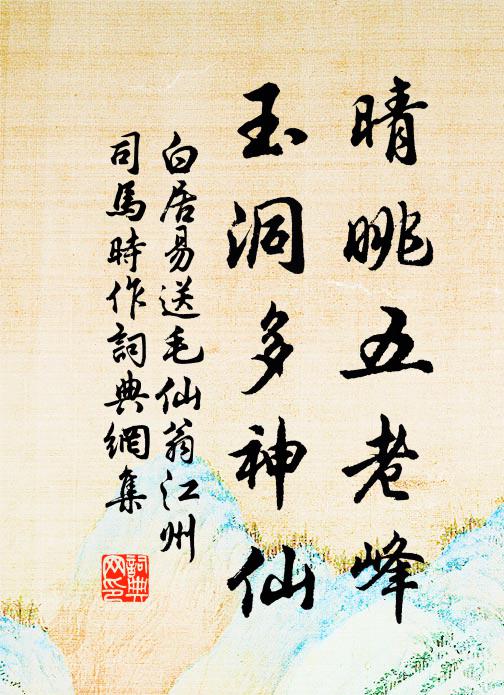 晴眺五老峰
玉洞多神仙
白居易送毛仙翁江州
司馬時作詞典網集
詞典
网印